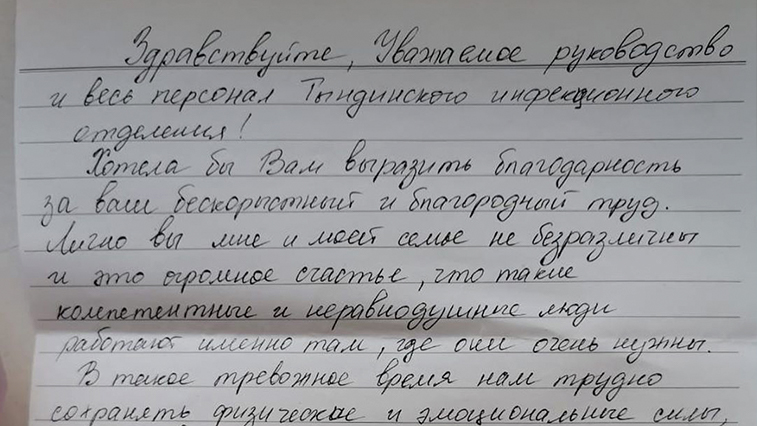 Здравствуйте, Уважаемое руководство
и весь персонал Тындинского инфекционного
отделения!
Хотела бы Вам выразить благодарность
за ваш бескорыстный и благородный труд.
Лично вы мне и моей семье не безразличны
и это огромное счастье, что такие
компетентные и неравнодушные люди
работают именно там, где они очень нужны.
В такое тревожное время нам трудно
сохранять физические и эмоциональные силы,